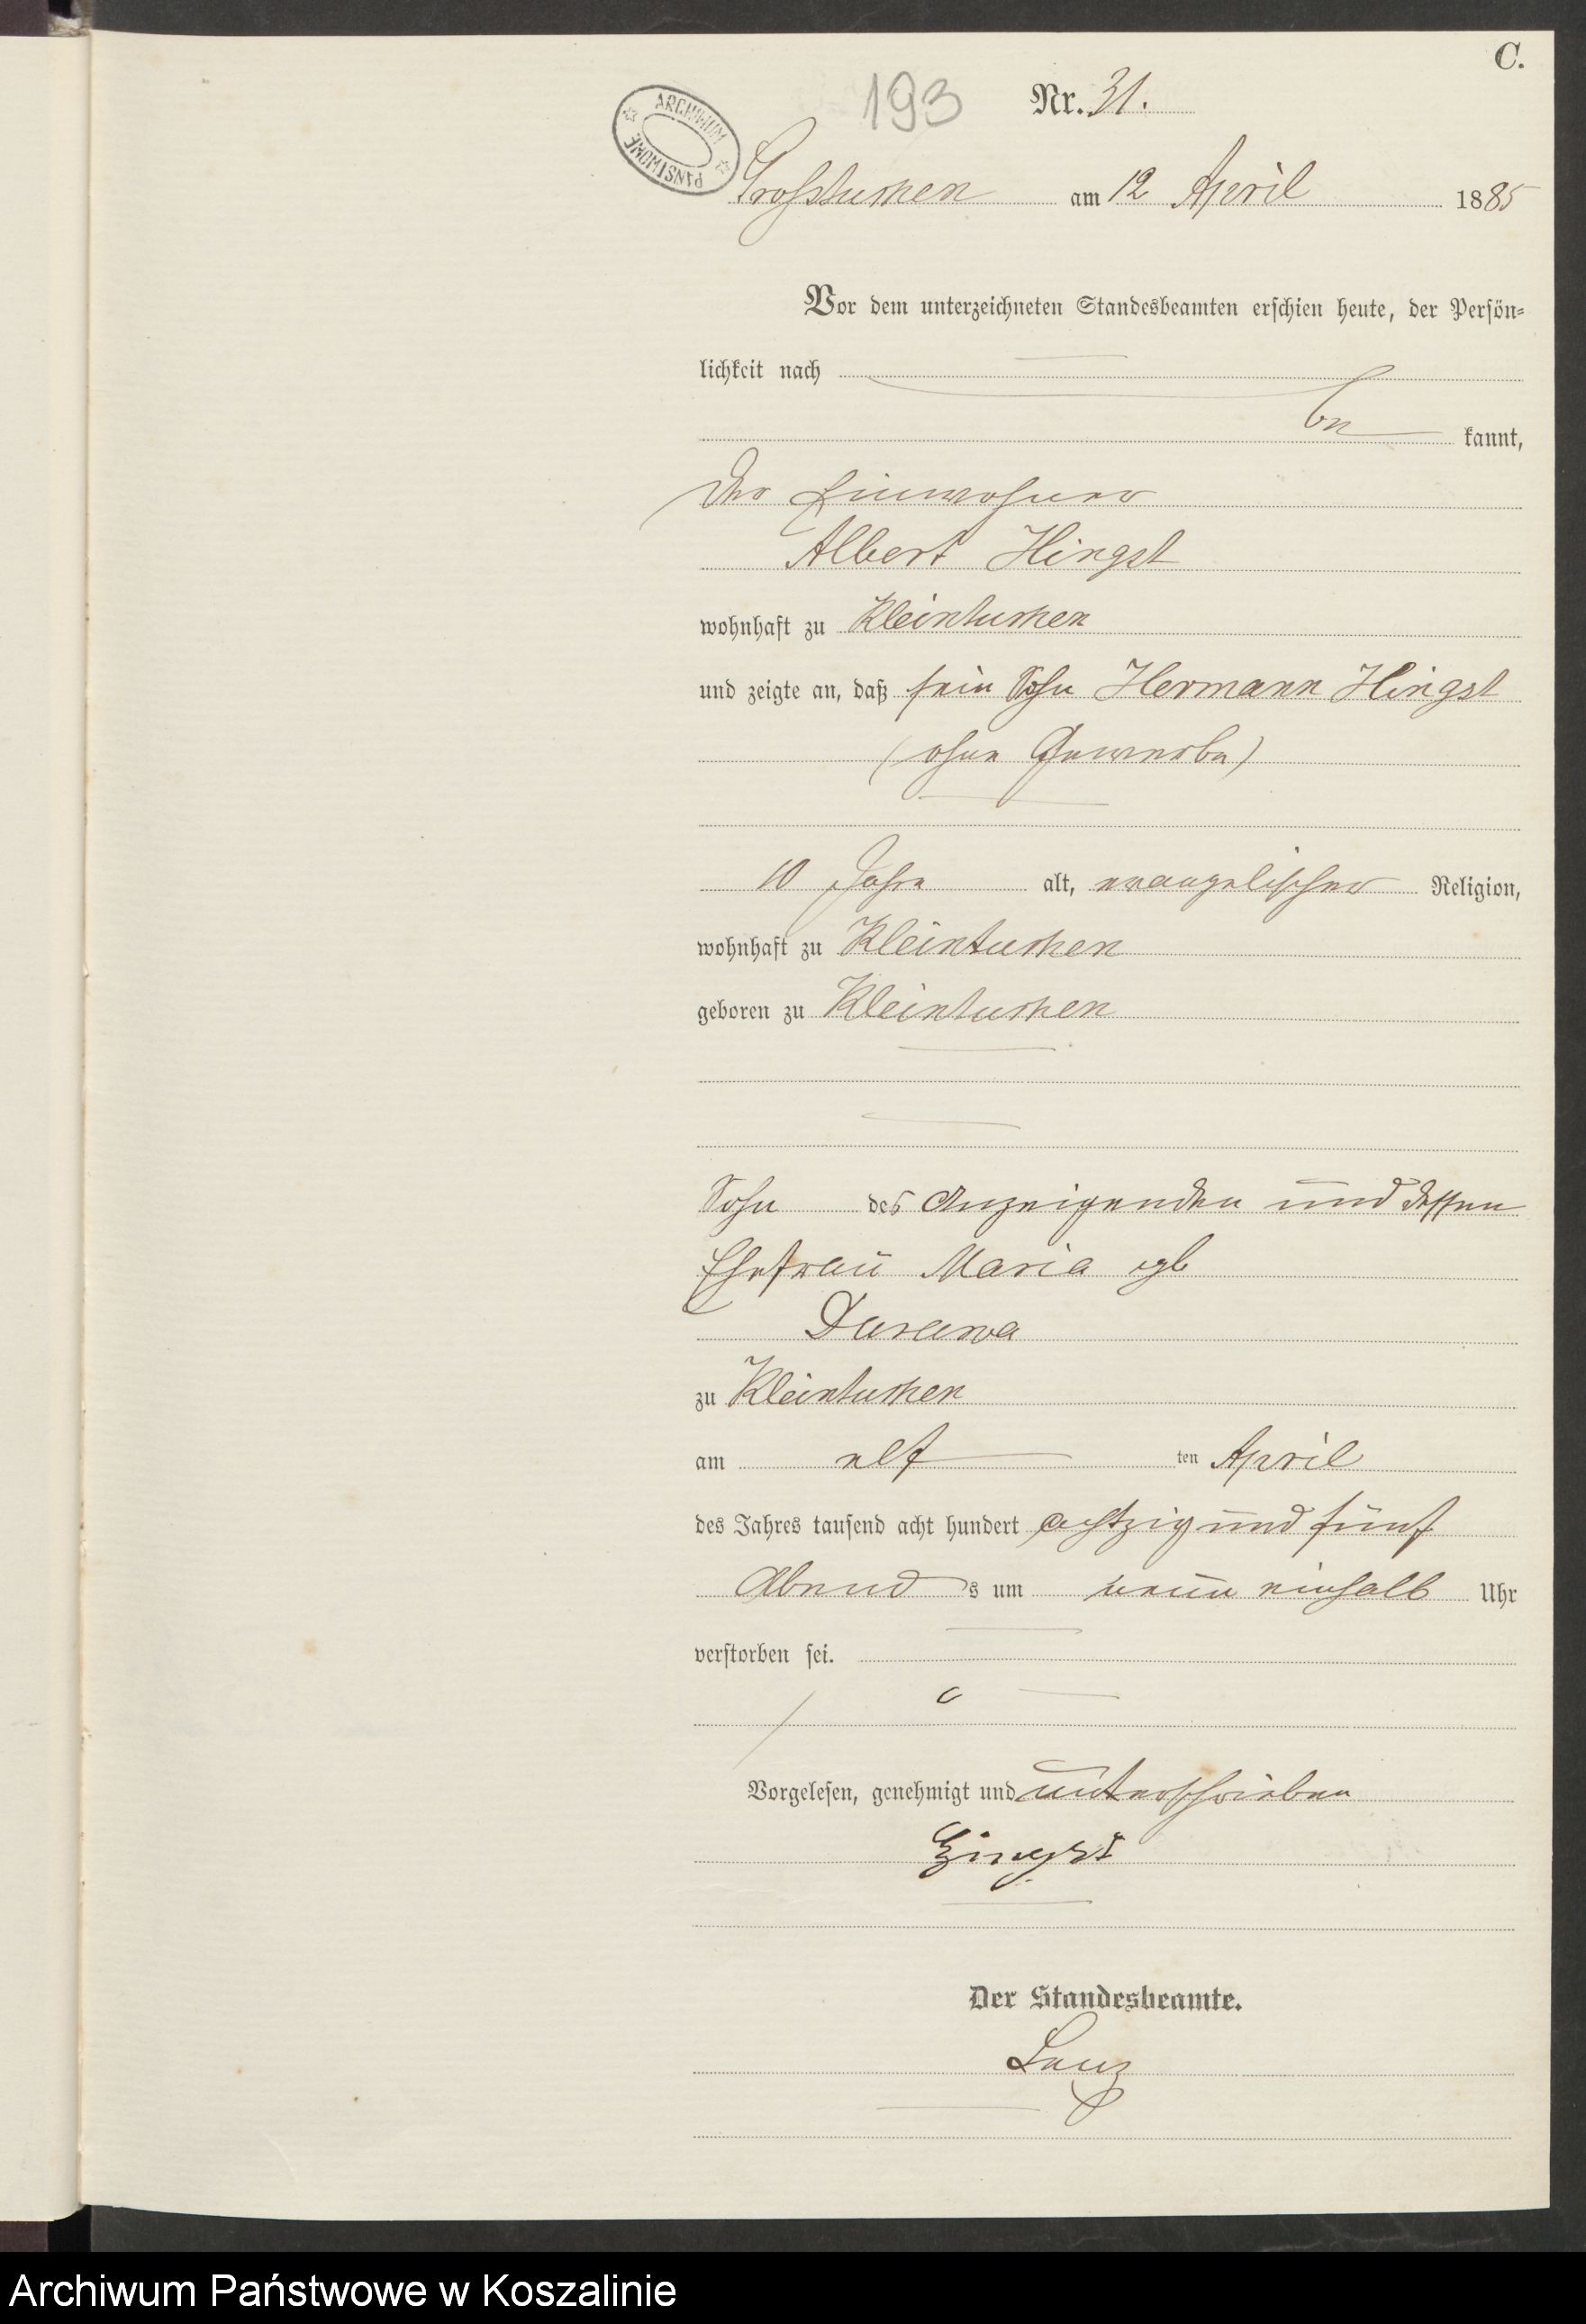 C.
193 Nr. 31.
ARCHIWUM PAŃSTWOWE
Grosstuchen am 12 April 1885
Vor dem unterzeichneten Standesbeamten erschien heute, der Persön-
lichkeit nach
be kannt,
der Einwohner
Albert Hingst
wohnhaft zu Kleintuchen
und zeigte an, daß sein Sohn Hermann Hingst
(ohne Gewerbe)
10 Jahre alt, evangelischer Religion,
wohnhaft zu Kleintuchen
geboren zu Kleintuchen
Sohn des Anzeigenden und dessen
Ehefrau Maria
zu Kleintuchen
am elf ten April
des Jahres tausend acht hundert achtzig und fünf
Abend s um neun einhalb Uhr
verstorben sei.
Vorgelesen, genehmigt und unterschrieben
Hingst
Der Standesbeamte.
Archiwum Państwowe w Koszalinie